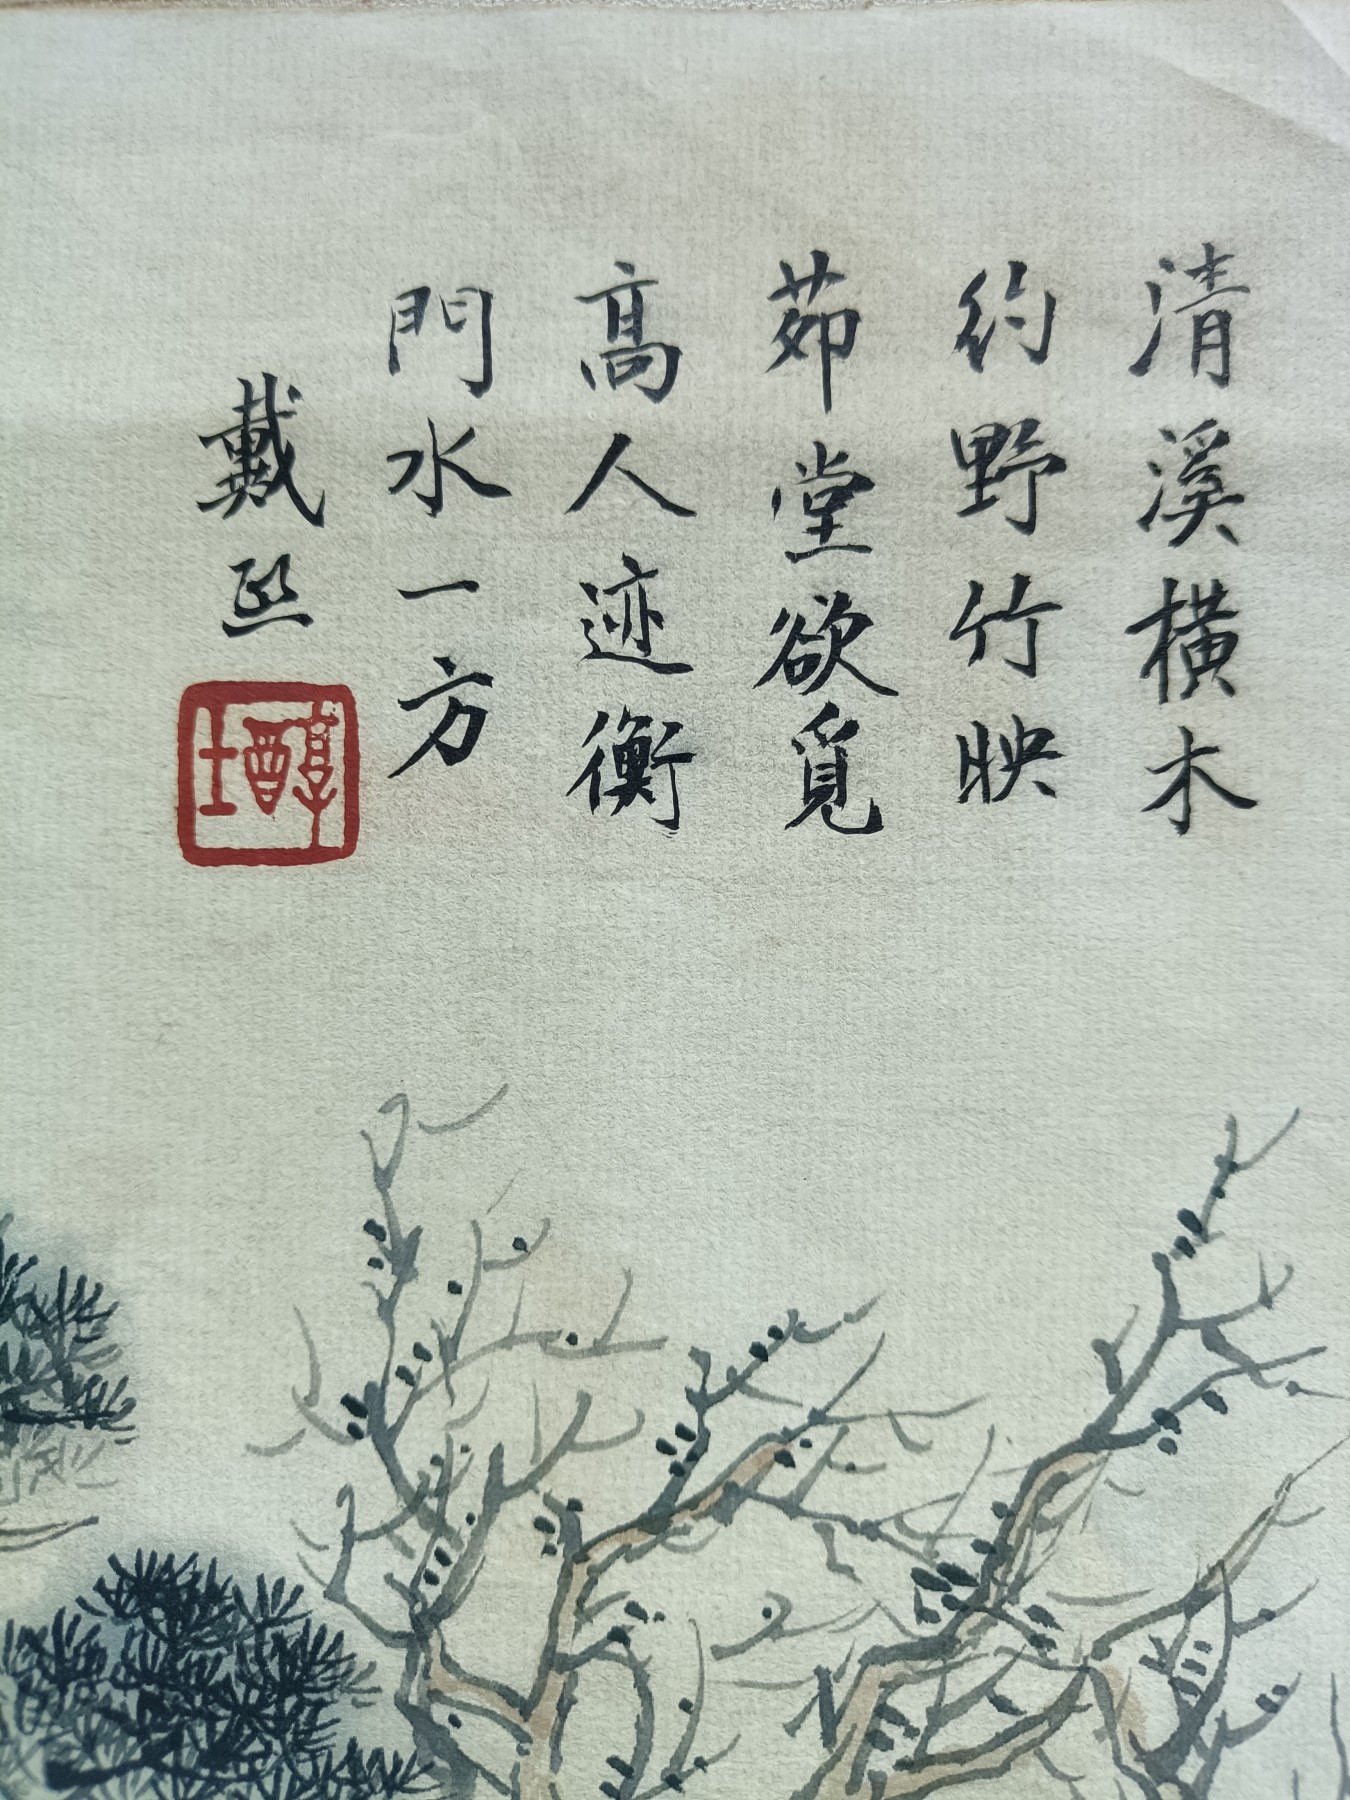 清溪橫木
約野竹映
茆堂欲覓
高人迹衡
門水一方
戴熙
醇士